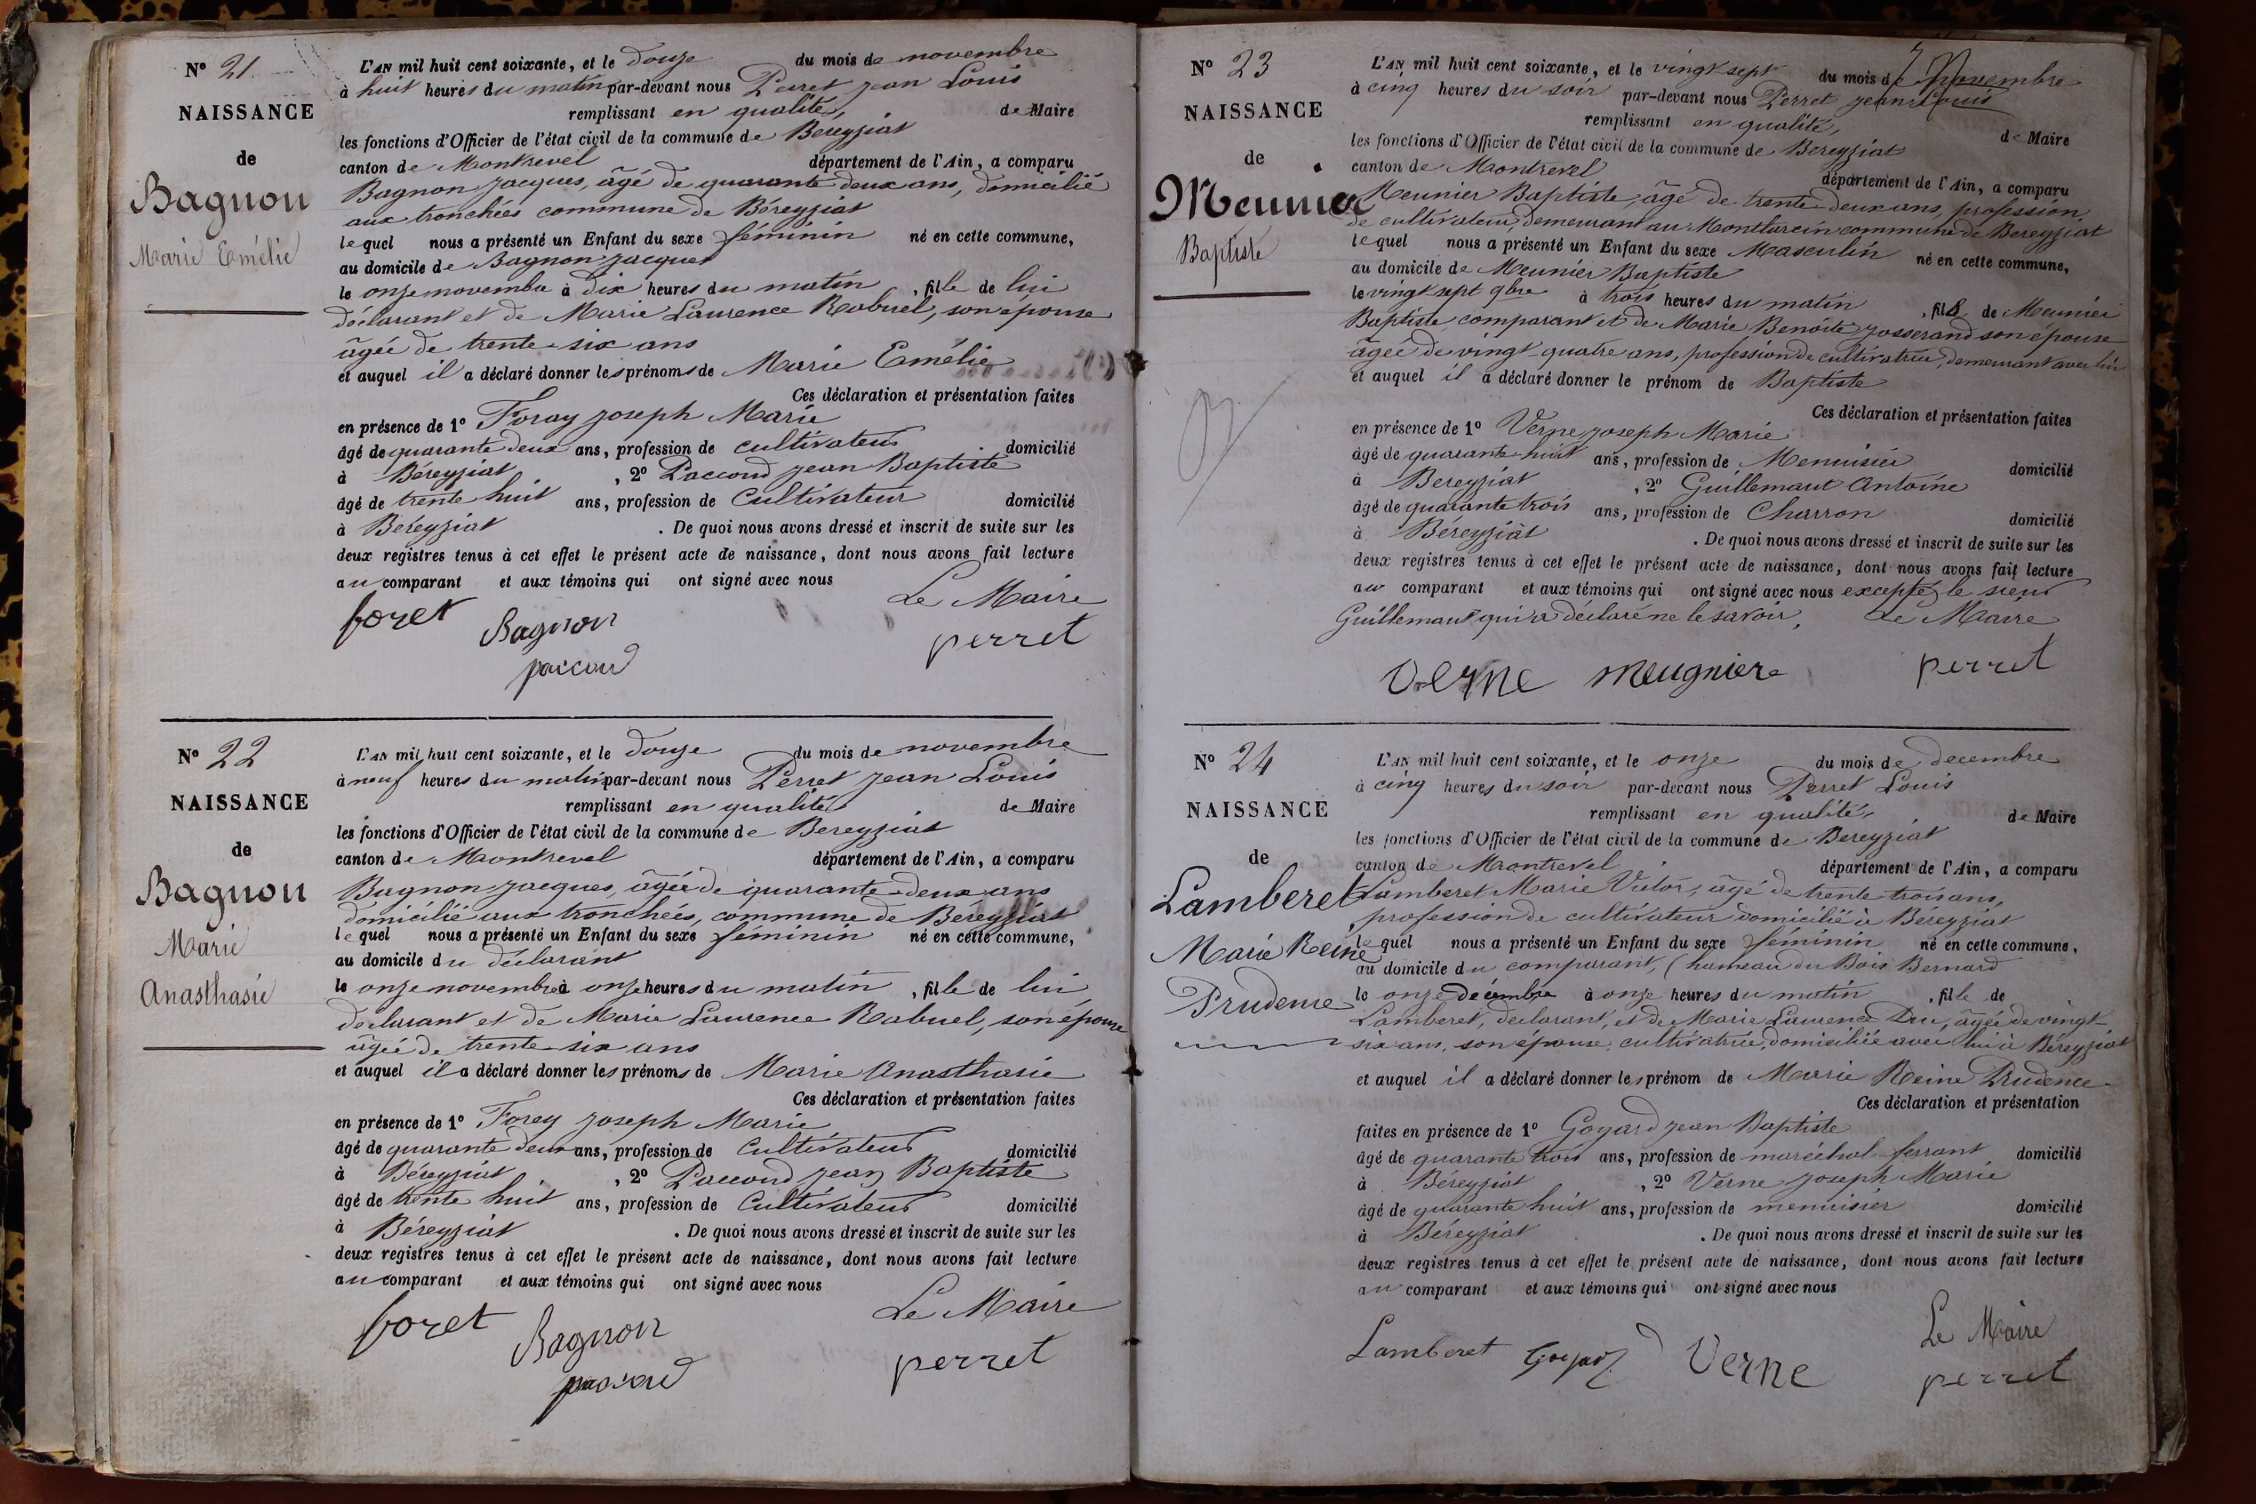 N° 21
NAISSANCE
de
Bagnon
Marie Emélie
L'AN mil huit cent soixante, et le douze du mois de novembre
à huit heures du matin par-devant nous Perret jean Louis
remplissant en qualité, de Maire
les fonctions d'Officier de l'état civil de la commune de Bereyziat
canton de Montrevel département de l'Ain, a comparu
Bagnon jacques, âgé de quarante deux ans, domicilié
aux tronchées commune de Béreyziat
lequel nous a présenté un Enfant du sexe féminin né en cette commune,
au domicile de Bagnon jacques
le onze novembre à dix heures du matin, fille de lui
déclarant et de Marie Laurence Rabuel, son épouse
âgée de trente-six ans
et auquel il a déclaré donner les prénoms de Marie Emélie
Ces déclaration et présentation faites
en présence de 1° Foray joseph Marie
âgé de quarante deux ans, profession de cultivateur domicilié
à Béreyziat, 2° Paccoud jean Baptiste
âgé de trente huit ans, profession de Cultivateur domicilié
à Beréyziat. De quoi nous avons dressé et inscrit de suite sur les
deux registres tenus à cet effet le présent acte de naissance, dont nous avons fait lecture
au comparant et aux témoins qui ont signé avec nous
Le Maire
foret Bagnon perret
paccoud
N° 22
NAISSANCE
de
Bagnon
Marie
Anasthasie
L'AN mil huit cent soixante, et le douze du mois de novembre
à neuf heures du matin par-devant nous Perret jean Louis
remplissant en qualité de Maire
les fonctions d'Officier de l'état civil de la commune de Bereyziat
canton de Montrevel département de l'Ain, a comparu
Bagnon jacques, âgée de quarante-deux ans
domicilié aux tronchées, commune de Béreyziat
lequel nous a présenté un Enfant du sexe féminin né en cette commune,
au domicile du déclarant
le onze novembre à onze heures du matin, fille de lui
declarant et de Marie Laurence Rabuel, son épouse
âgée de trente-six ans
et auquel il a déclaré donner les prénoms de Marie Anasthasie
Ces déclaration et présentation faites
en présence de 1° Forey joseph Marie
âgé de quarante deux ans, profession de Cultivateur domicilié
à Béreyziat, 2° Paccoud jean Baptiste
âgé de trente huit ans, profession de Cultivateur domicilié
à Béreyziat. De quoi nous avons dressé et inscrit de suite sur les
deux registres tenus à cet effet le présent acte de naissance, dont nous avons fait lecture
au comparant et aux témoins qui ont signé avec nous
Le Maire
foret Bagnon perret
paccoud
N° 23
NAISSANCE
de
Meunier
Baptiste
L'AN mil huit cent soixante, et le vingt sept du mois de Novembre
à cinq heures du soir par-devant nous Perret jean Louis
remplissant en qualité, de Maire
les fonctions d'Officier de l'état civil de la commune de Bereyziat
canton de Montrevel département de l'Ain, a comparu
Meunier Baptiste, âgé de trente-deux ans, profession
de cultivateur, demeurant au Montburcin commune de Bereyziat
lequel nous a présenté un Enfant du sexe Masculin né en cette commune,
au domicile de Meunier Baptiste
le vingt sept 9bre à trois heures du matin, fils de Meunier
Baptiste comparant et de Marie Benoîte josserand son épouse
âgée de vingt-quatre ans, profession de cultivatrice, demeurant avec lui
et auquel il a déclaré donner le prénom de Baptiste
Ces déclaration et présentation faites
en présence de 1° Verne joseph Marie
âgé de quarante-huit ans, profession de Menuisier domicilié
à Bereyziat, 2° Guillemaut Antoine
âgé de quarante trois ans, profession de Charron domicilié
à Béreyziat. De quoi nous avons dressé et inscrit de suite sur les
deux registres tenus à cet effet le présent acte de naissance, dont nous avons fait lecture
au comparant et aux témoins qui ont signé avec nous excepté le sieur
Guillemaut qui a déclaré ne le savoir. Le Maire
Verne Meugniere perret
N° 24
NAISSANCE
de
Lamberet
Marie Reine
Prudence
L'AN mil huit cent soixante, et le onze du mois de decembre
à cinq heures du soir par-devant nous Perret Louis
remplissant en qualité, de Maire
les fonctions d'Officier de l'état civil de la commune de Bereyziat
canton de Montrevel département de l'Ain, a comparu
Lamberet Marie Victor, âgé de trente trois ans,
profession de cultivateur domicilié à Béreyziat
lequel nous a présenté un Enfant du sexe féminin né en cette commune,
au domicile du comparant, (hameau du Bois Bernard
le onze decembre à onze heures du matin, fille de
Lamberet, declarant, et de Marie Laurence Duc, âgée de vingt-
six ans, son épouse, cultivatrice, domiciliée avec lui à Béreyziat
et auquel il a déclaré donner le prénom de Marie Reine Prudence
Ces déclaration et présentation
faites en présence de 1° Goyard jean Baptiste
âgé de quarante trois ans, profession de maréchal-ferrant domicilié
à Béreyziat, 2° Verne joseph Marie
âgé de quarante huit ans, profession de menuisier domicilié
à Béreyziat. De quoi nous avons dressé et inscrit de suite sur les
deux registres tenus à cet effet le présent acte de naissance, dont nous avons fait lecture
au comparant et aux témoins qui ont signé avec nous
Le Maire
Lamberet Goyard Verne perret